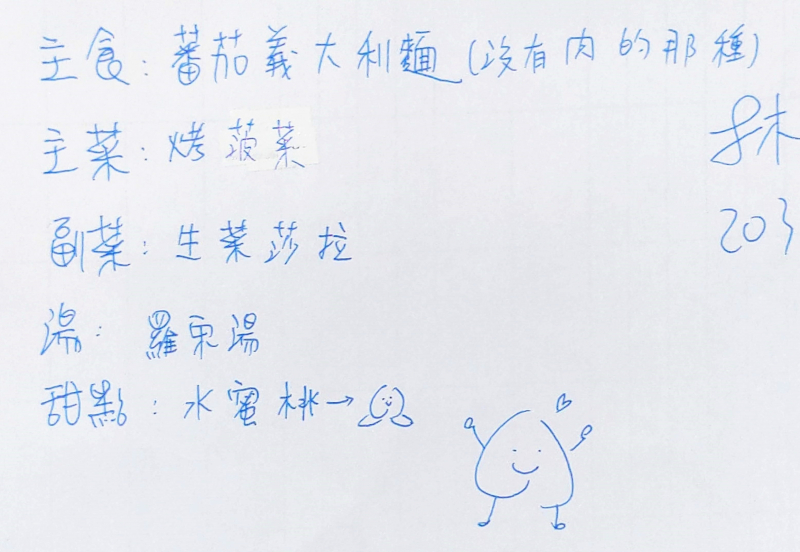 主食：蕃茄義大利麵(沒有肉的那種)
主菜：烤菠菜
副菜：生菜莎拉
湯：羅宋湯
甜點：水蜜桃→
203